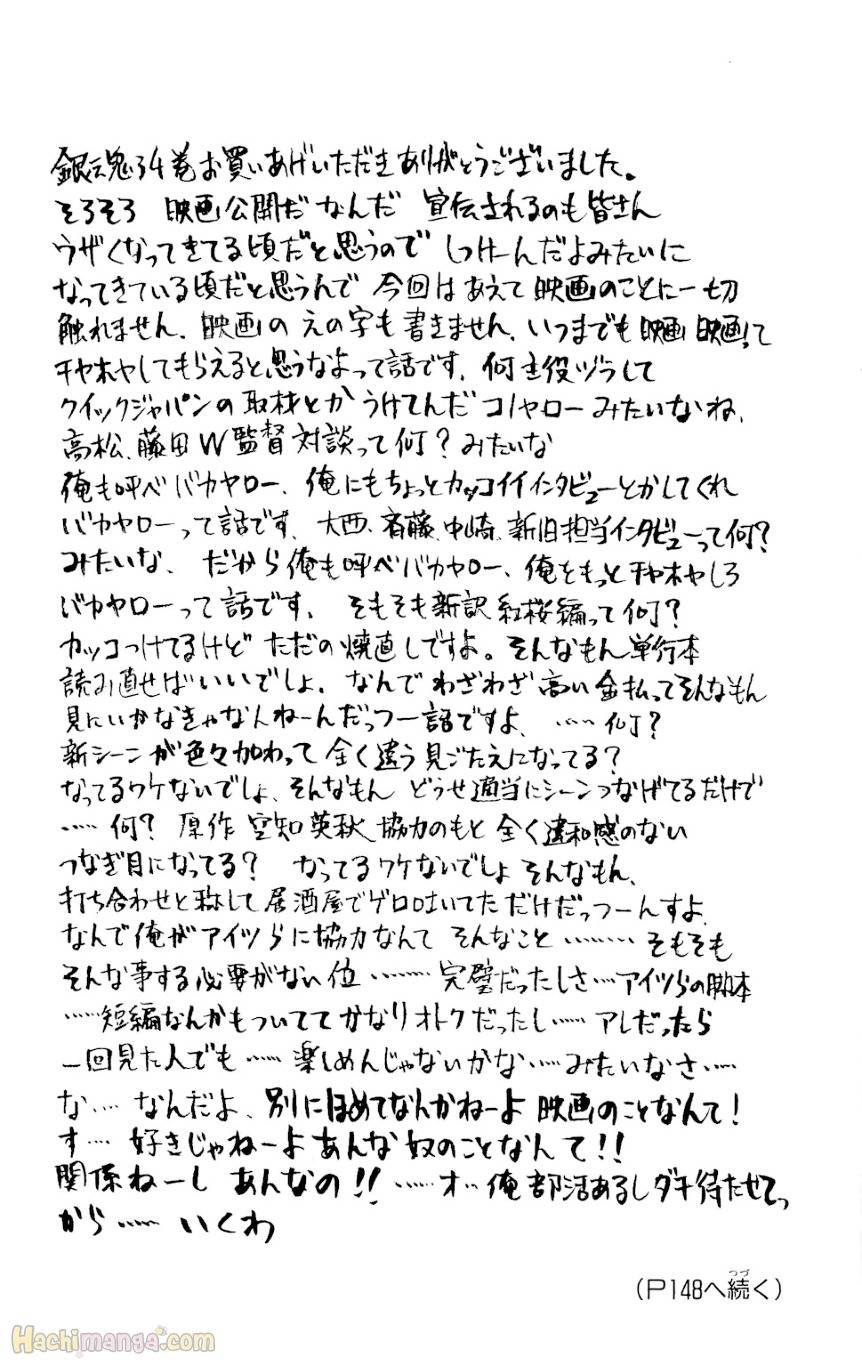 銀魂34巻お買いあげいただきありがとうございました。
そろそろ 映画公開だなんだ 宣伝されるのも皆さん
ウザくなってきてる頃だと思うので しつけーんだよみたいに
なってきている頃だと思うんで 今回はあえて映画のことに一切
触れません、映画の えの字も書きません、いつまでも映画映画って
チヤホヤしてもらえると思うなよって話です、何主役ヅラして
クイックジャパンの取材とかうけてんだコノヤローみたいなね、
高松、藤田W監督対談って何?みたいな
俺も呼べバカヤロー、俺にもちょっとカッコイイインタビューとかしてくれ
バカヤローって話です、大西、斉藤、中崎、新旧担当インタビューって何?
みたいな、だから俺も呼べバカヤロー、俺をもっとチヤホヤしろ
バカヤローって話です、そもそも新訳紅桜編って何?
カッコつけてるけど ただの焼直しですよ。そんなもん単行本
読み直せばいいでしょ、なんでわざわざ高い金払ってそんなもん
見にいかなきゃなんねーんだっつー話ですよ、……何?
新シーンが色々加わって全く違う見ごたえになってる?
なってるワケないでしょ、そんなもん どうせ適当にシーンつなげてるだけで
……何? 原作 空知英秋 協力のもと全く違和感のない
つなぎ目になってる? なってるワケないでしょ そんなもん、
打ち合わせと称して居酒屋でゲロ吐いてただけだっつーんすよ、
なんで俺がアイツらに協力なんて そんなこと………そもそも
そんな事する必要がない位………完璧だったしさ…アイツらの脚本
……短編なんかもついててかなりオトクだったし……アレだったら
一回見た人でも……楽しめんじゃないかな……みたいなさ……
な… なんだよ、別にほめてなんかねーよ 映画のことなんて!
す… 好きじゃねーよ あんな奴のことなんて!!
関係ねーし あんなの!!……オ…俺部活あるしダチ待たせてっ
から…… いくわ
(P148へ続く)
つづ
Hachimanga.com